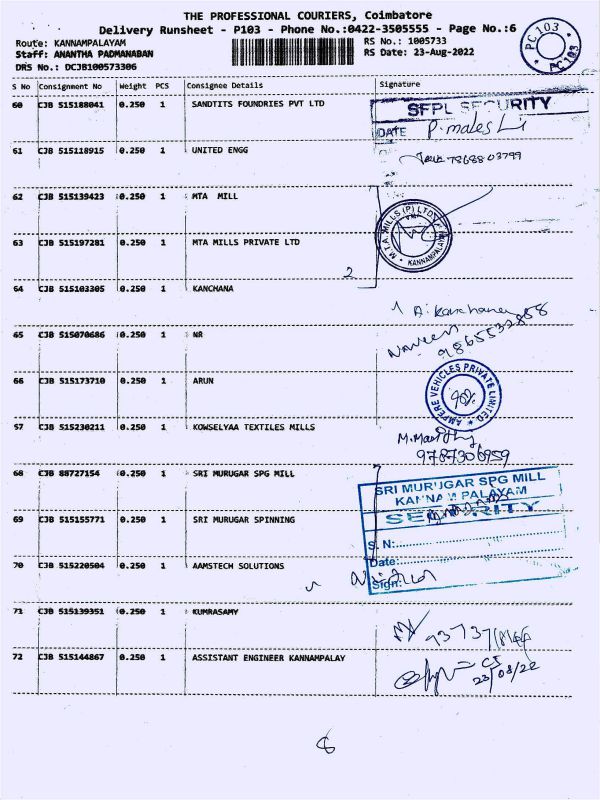 THE PROFESSIONAL COURIERS, Coimbatore
Delivery Runsheet - P103 - Phone No.:0422-3505555 - Page No.:6
Route: KANNAMPALAYAM
RS No.: 1005733
Staff: ANANTHA PADMANABAN
RS Date: 23-Aug-2022
DRS No.: DCJB100573306
PC 103
PC 103
S No Consignment No Weight PCS Consignee Details Signature
60 CJB 515188041 0.250 1 SANDTITS FOUNDRIES PVT LTD
SFPL SECURITY
DATE
61 CJB 515118915 0.250 1 UNITED ENGG
7868803799
62 CJB 515139423 0.250 1 MTA MILL
M.T.A. MILLS (P) LTD
KANNAMPALAYAM
63 CJB 515197281 0.250 1 MTA MILLS PRIVATE LTD
2
64 CJB 515103305 0.250 1 KANCHANA
65 CJB 515070686 0.250 1 NR
Naveen
66 CJB 515173710 0.250 1 ARUN
AMPERE VEHICLES PRIVATE LIMITED
67 CJB 515230211 0.250 1 KOWSELYAA TEXTILES MILLS
9787306959
68 CJB 88727154 0.250 1 SRI MURUGAR SPG MILL
SRI MURUGAR SPG MILL
KANNAMPALAYAM
SECURITY
69 CJB 515155771 0.250 1 SRI MURUGAR SPINNING
S. N:
70 CJB 515220504 0.250 1 AAMSTECH SOLUTIONS
Date:
Sign:
71 CJB 515139351 0.250 1 KUMRASAMY
72 CJB 515144867 0.250 1 ASSISTANT ENGINEER KANNAMPALAY
23/08/22